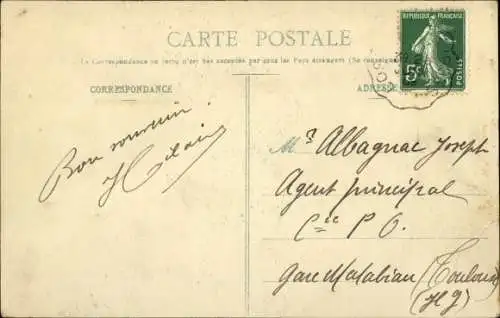 CARTE POSTALE
La Correspondance au recto n'est pas acceptée par tous les Pays étrangers (Se renseigner
CORRESPONDANCE
ADRESSE
REPUBLIQUE FRANÇAISE
5c
POSTES
Bon souvenir !
Hilaire
Mr Albagnac Joseph
Agent principal
Cie P O.
Gare Matabiau (Toulouse
(Hg)